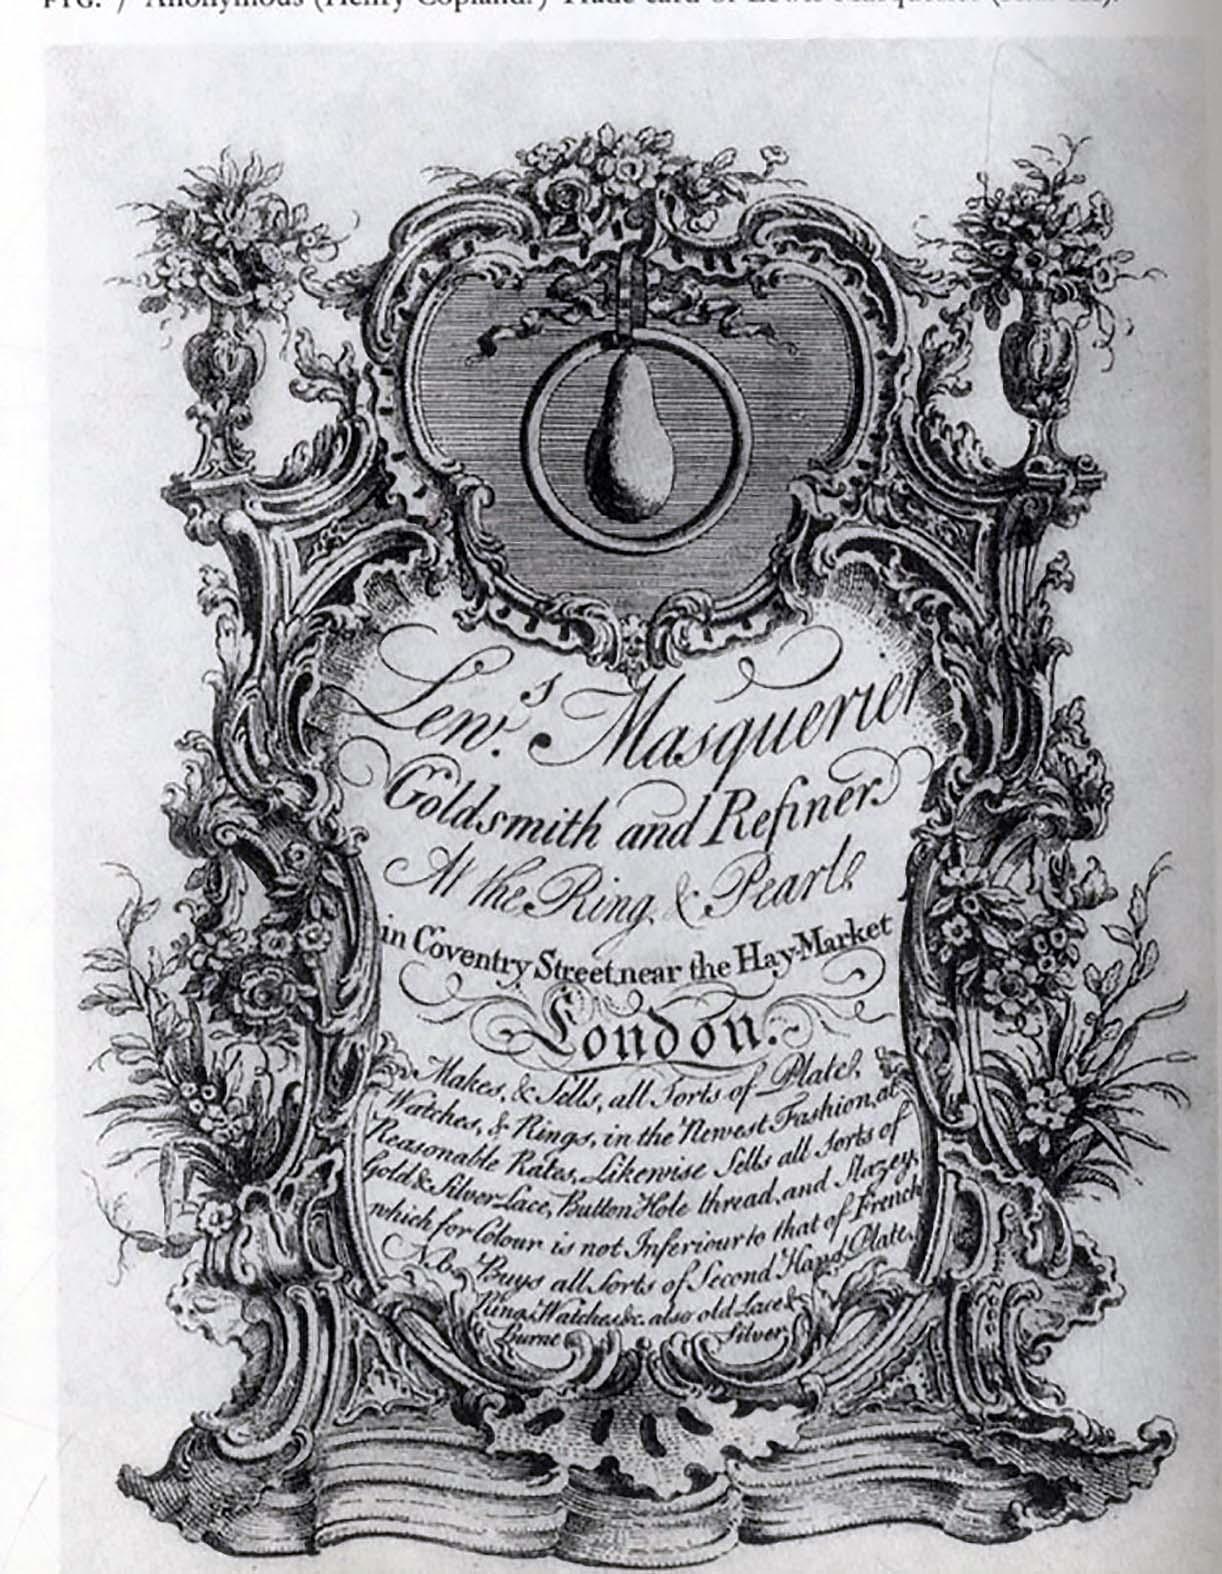 FYG. 7 Anonymous (Henry Copland?) Trade card of Lewis Masquerier
Lew.s Masquerier
Goldsmith and Refiner.
At the Ring & Pearl,
in Coventry Street, near the Hay-Market
London.
Makes, & Sells, all Sorts of Plate,
Watches, & Rings, in the Newest Fashion, at
Reasonable Rates, Likewise Sells all Sorts of
Gold & Silver Lace, Button Hole thread, and Slazey,
which for Colour is not Inferiour to that of French
N.B. Buys all Sorts of Second Hand Plate,
Rings, Watches &c. also old Lace &
Burnt Silver.